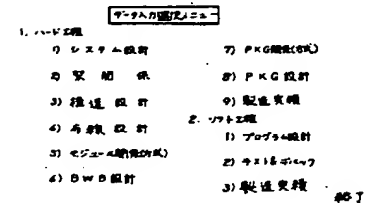 データ入力選択メニュー
1. ハード工程
1) システム設計
2)
3) 構造設計
4) 布線設計
5) モジュール開発(方式)
6) BWB設計
7) PKG開発(方式)
8) PKG設計
9) 製造実績
2. ソフト工程
1) プログラム設計
2) テスト&デバッグ
3) 製造実績
終了